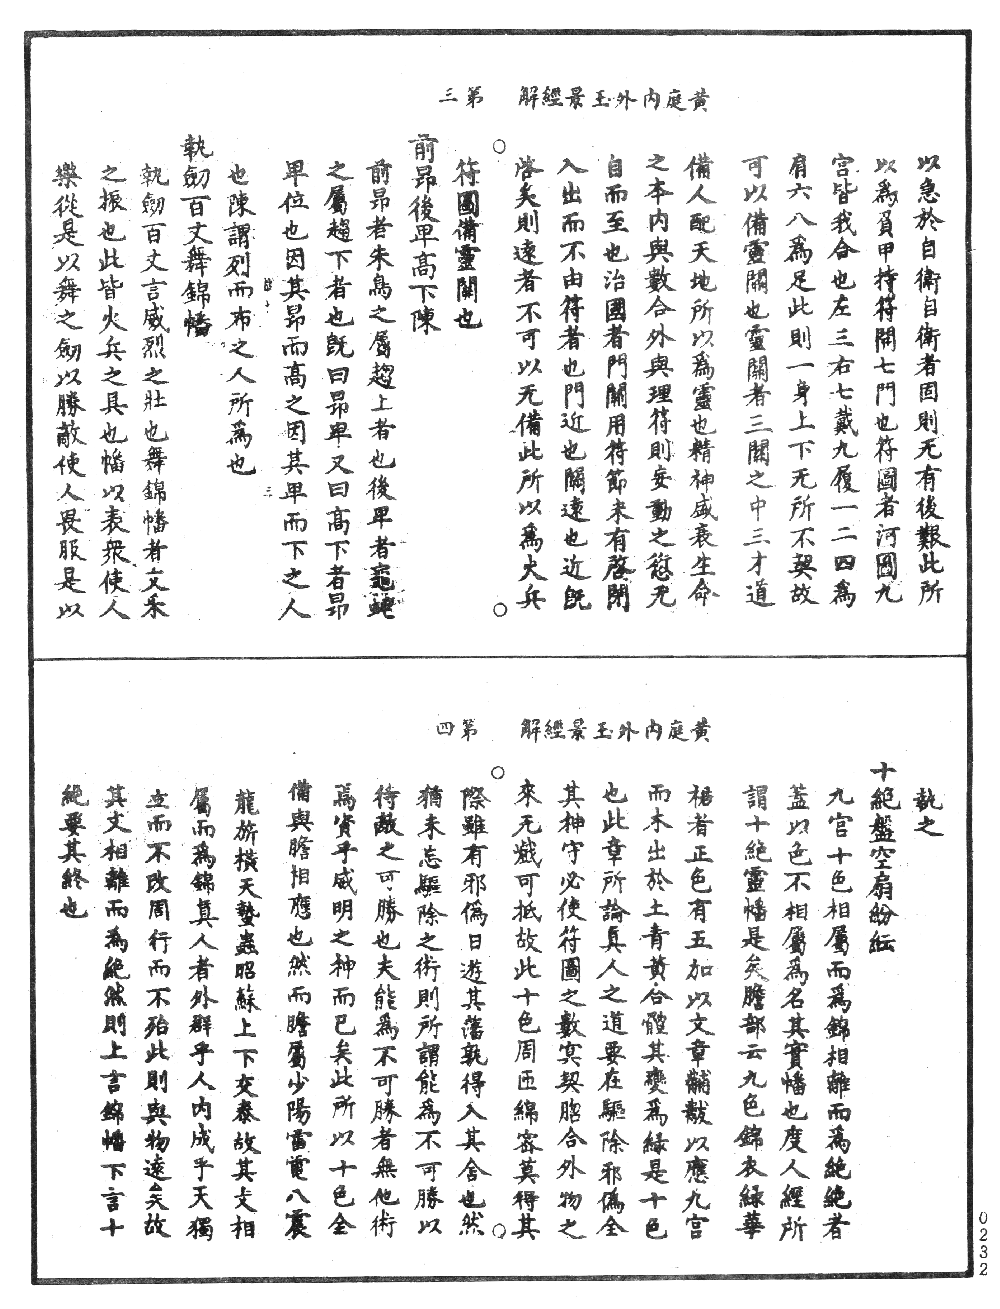 黃庭內外玉景經解　第三
以急於自衛自衛者固則无有後艱此所
以為負甲持符開七門也符圖者河圖九
宮皆我合也左三右七戴九履一二四為
肩六八為足此則一身上下无所不契故
可以備靈關也靈關者三關之中三才道
備人配天地所以為靈也精神盛衰生命
之本內與數合外與理符則妄動之愆无
自而至也治國者門關用符節來有啓閉
入出而不由符者也門近也關遠也近既
啓矣則遠者不可以无備此所以為火兵
符圖備靈關也
前昂後卑高下陳
前昂者朱鳥之屬趨上者也後卑者龜蛇
之屬趨下者也既曰昂卑又曰高下者昂
卑位也因其昂而高之因其卑而下之人
也陳謂列而布之人所為也
三
執劒百丈舞錦幡
執劒百丈言威烈之壯也舞錦幡者文采
之振也此皆火兵之具也幡以表衆使人
樂從是以舞之劒以勝敵使人畏服是以
黃庭內外玉景經解　第四
執之
十絕盤空扇紛紜
九宮十色相屬而為錦相離而為絕絕者
蓋以色不相屬為名其實幡也度人經所
謂十絕靈幡是矣膽部云九色錦衣綠華
裙者正色有五加以文章黼黻以應九宮
而木出於土青黃合體其變為綠是十色
也此章所論真人之道要在驅除邪偽全
其神守必使符圖之數冥契脗合外物之
來无巇可抵故此十色周匝綿密莫得其
際雖有邪偽日遊其藩孰得入其舍也然
猶未忘驅除之術則所謂能為不可勝以
待敵之可勝也夫能為不可勝者無他術
焉資乎威明之神而已矣此所以十色全
備與膽相應也然而膽屬少陽雷電八震
龍旂橫天蟄蟲昭蘇上下交泰故其文相
屬而為錦真人者外群乎人內成乎天獨
立而不改周行而不殆此則與物遠矣故
其文相離而為絕然則上言錦幡下言十
絕要其終也
0232